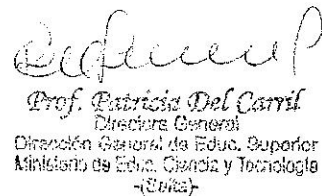 Prof. Patricia Del Carril
Directora General
Dirección General de Educ. Superior
Ministerio de Educ. Ciencia y Tecnología
-(Salta)-